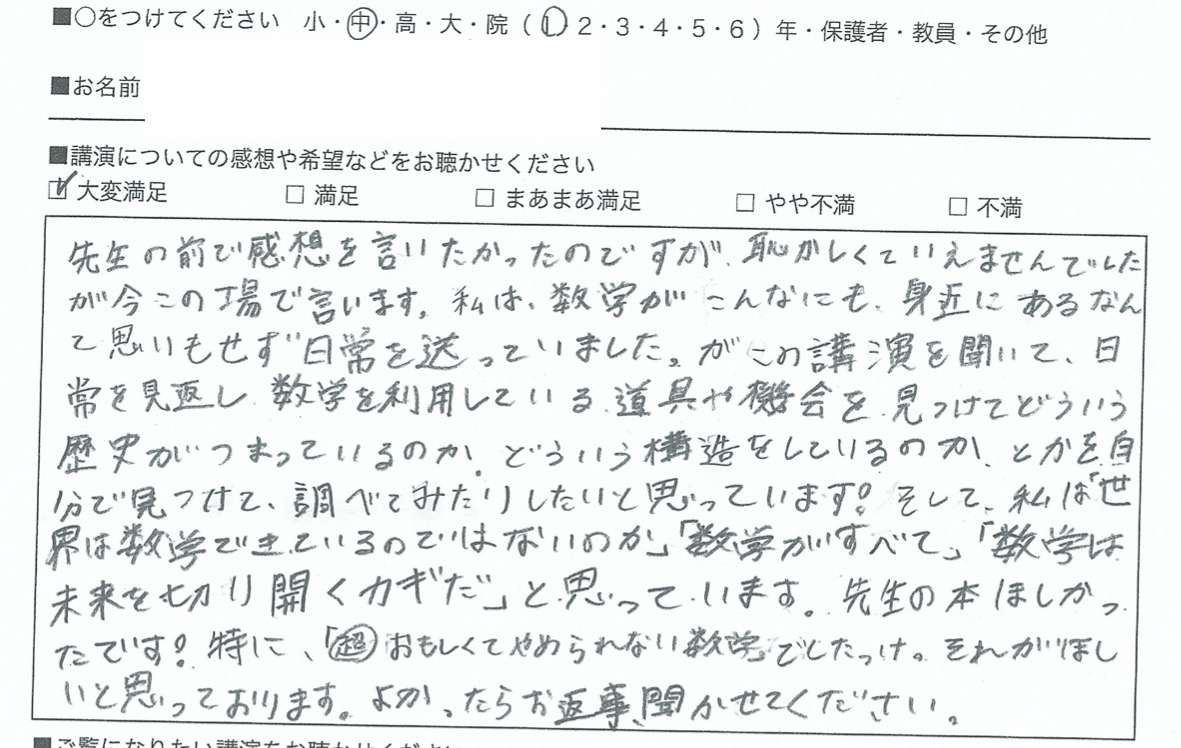 ■○をつけてください 小・中・高・大・院（1 2・3・4・5・6）年・保護者・教員・その他
■お名前
■講演についての感想や希望などをお聴かせください
☑ 大変満足 □ 満足 □ まあまあ満足 □ やや不満 □ 不満
先生の前で感想を言いたかったのですが、恥かしくていえませんでした
が今この場で言います。私は、数学がこんなにも、身近にあるなん
て思いもせず日常を送っていました。がこの講演を聞いて、日
常を見返し、数学を利用している、道具や機会を見つけてどういう
歴史がつまっているのか、どういう構造をしているのか、とかを自
分で見つけて、調べてみたりしたいと思っています!そして、私は「世
界は数学でできているのではないのか」「数学がすべて」「数学は
未来を切り開くカギだ」と思っています。先生の本ほしかっ
たです!特に、「超おもしくてやめられない数学」でしたっけ。それがほし
いと思っております。よかったらお返事、聞かせてください。
■ご覧になりたい講演をお聴かせください